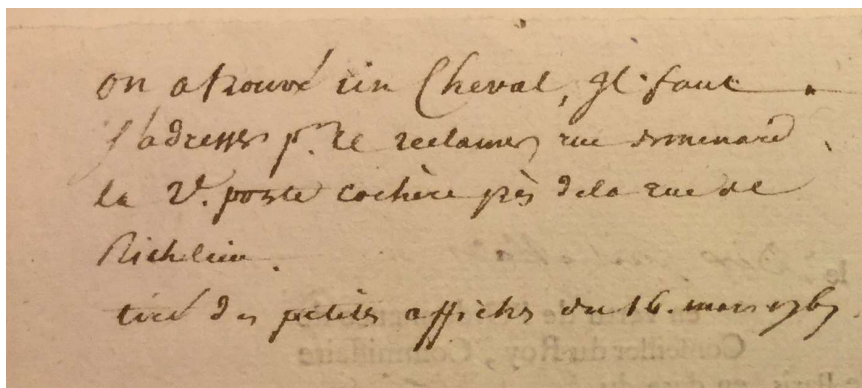 on a trouvé un Cheval, Il faut
s'adresser pr. le reclamer, rue menard,
la 2e. porte cochère près de la rue de
Richelieu.
tiré des petites affiches du 16. mars 1767.